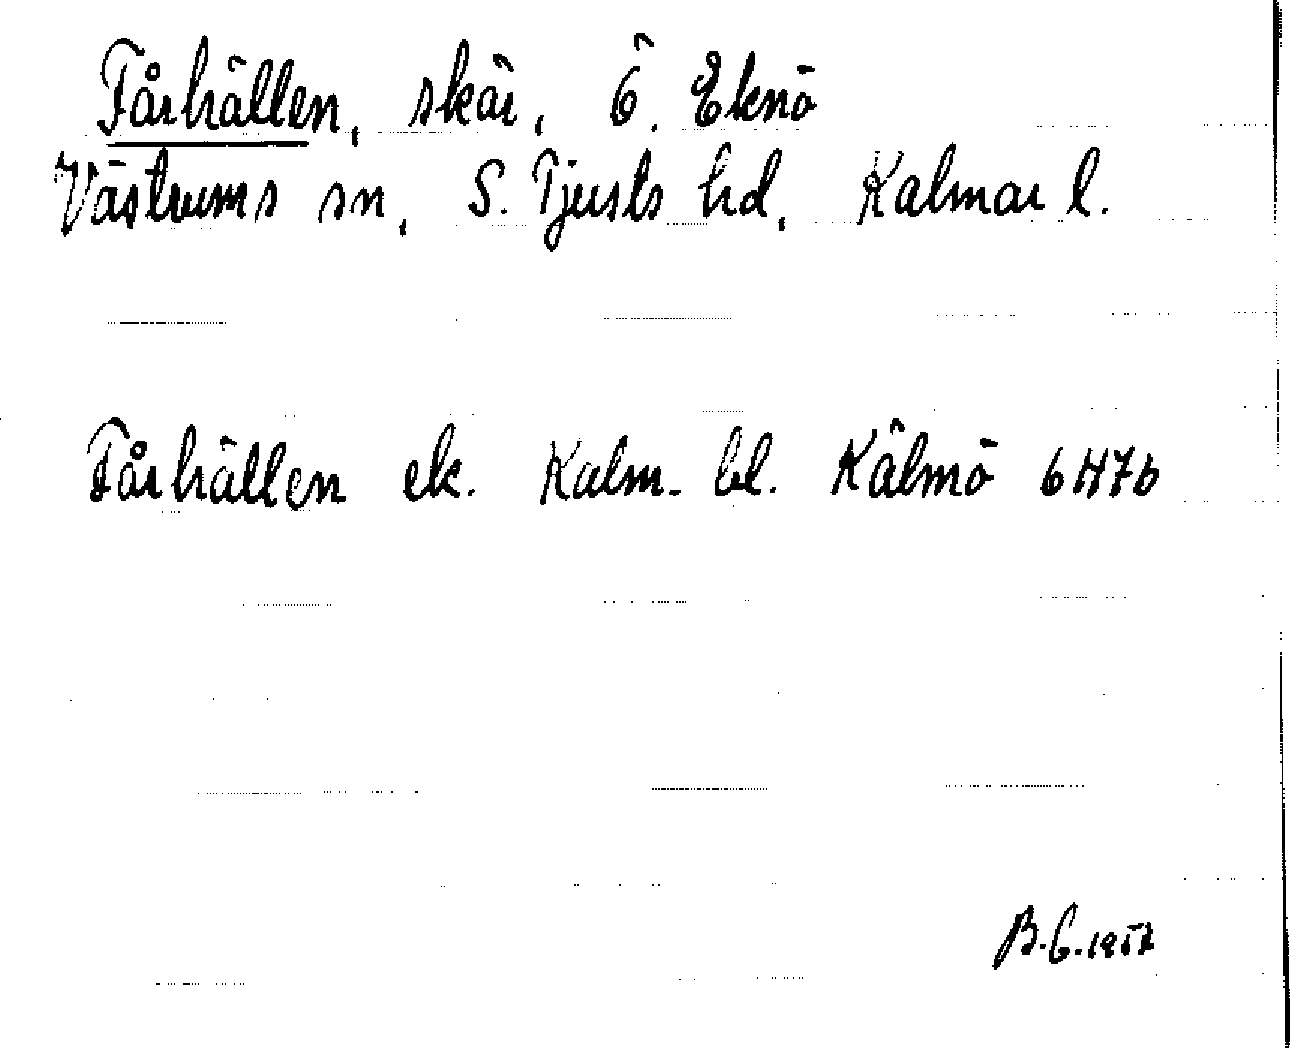 Fårhällen, skär, Ö. Eknö
Västrums sn, S. Tjusts hd, Kalmar l.
Fårhällen ek. Kalm. bl. Kälmö 6H7b
B.C. 1957